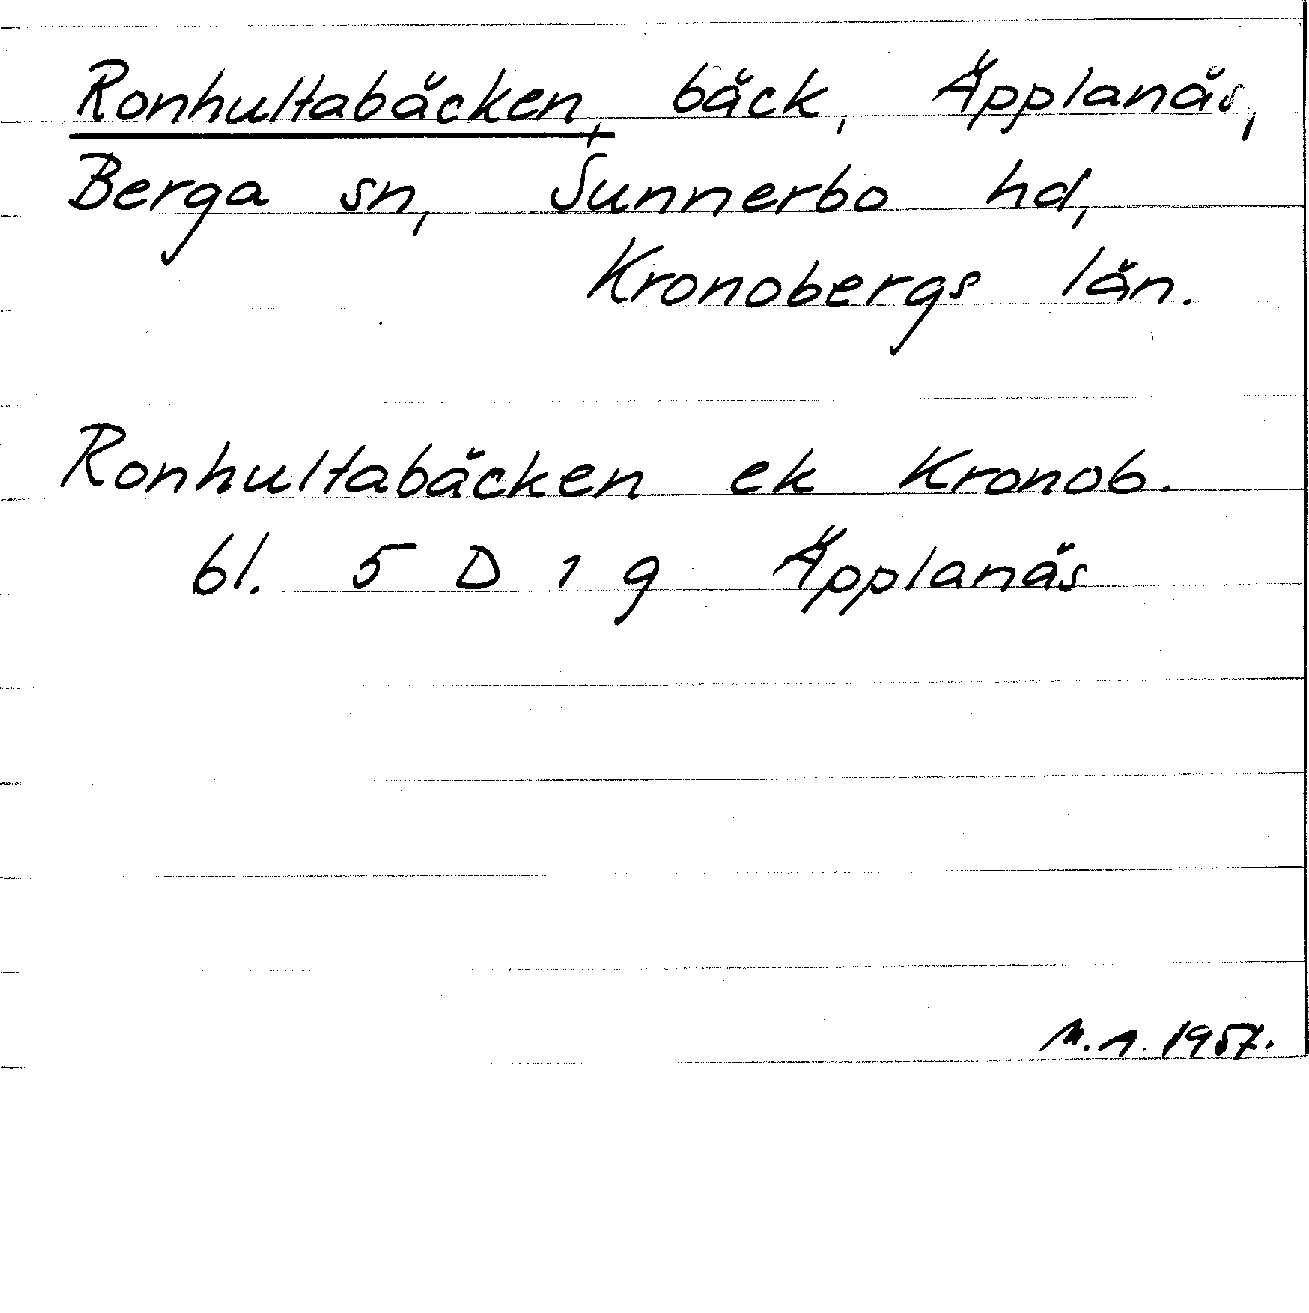 Ronhultabäcken, bäck, Äpplanäs,
Berga sn, Sunnerbo hd,
Kronobergs län.
Ronhultabäcken ek Kronob.
bl. 5 D 1 g Äpplanäs
M.A. 1957.